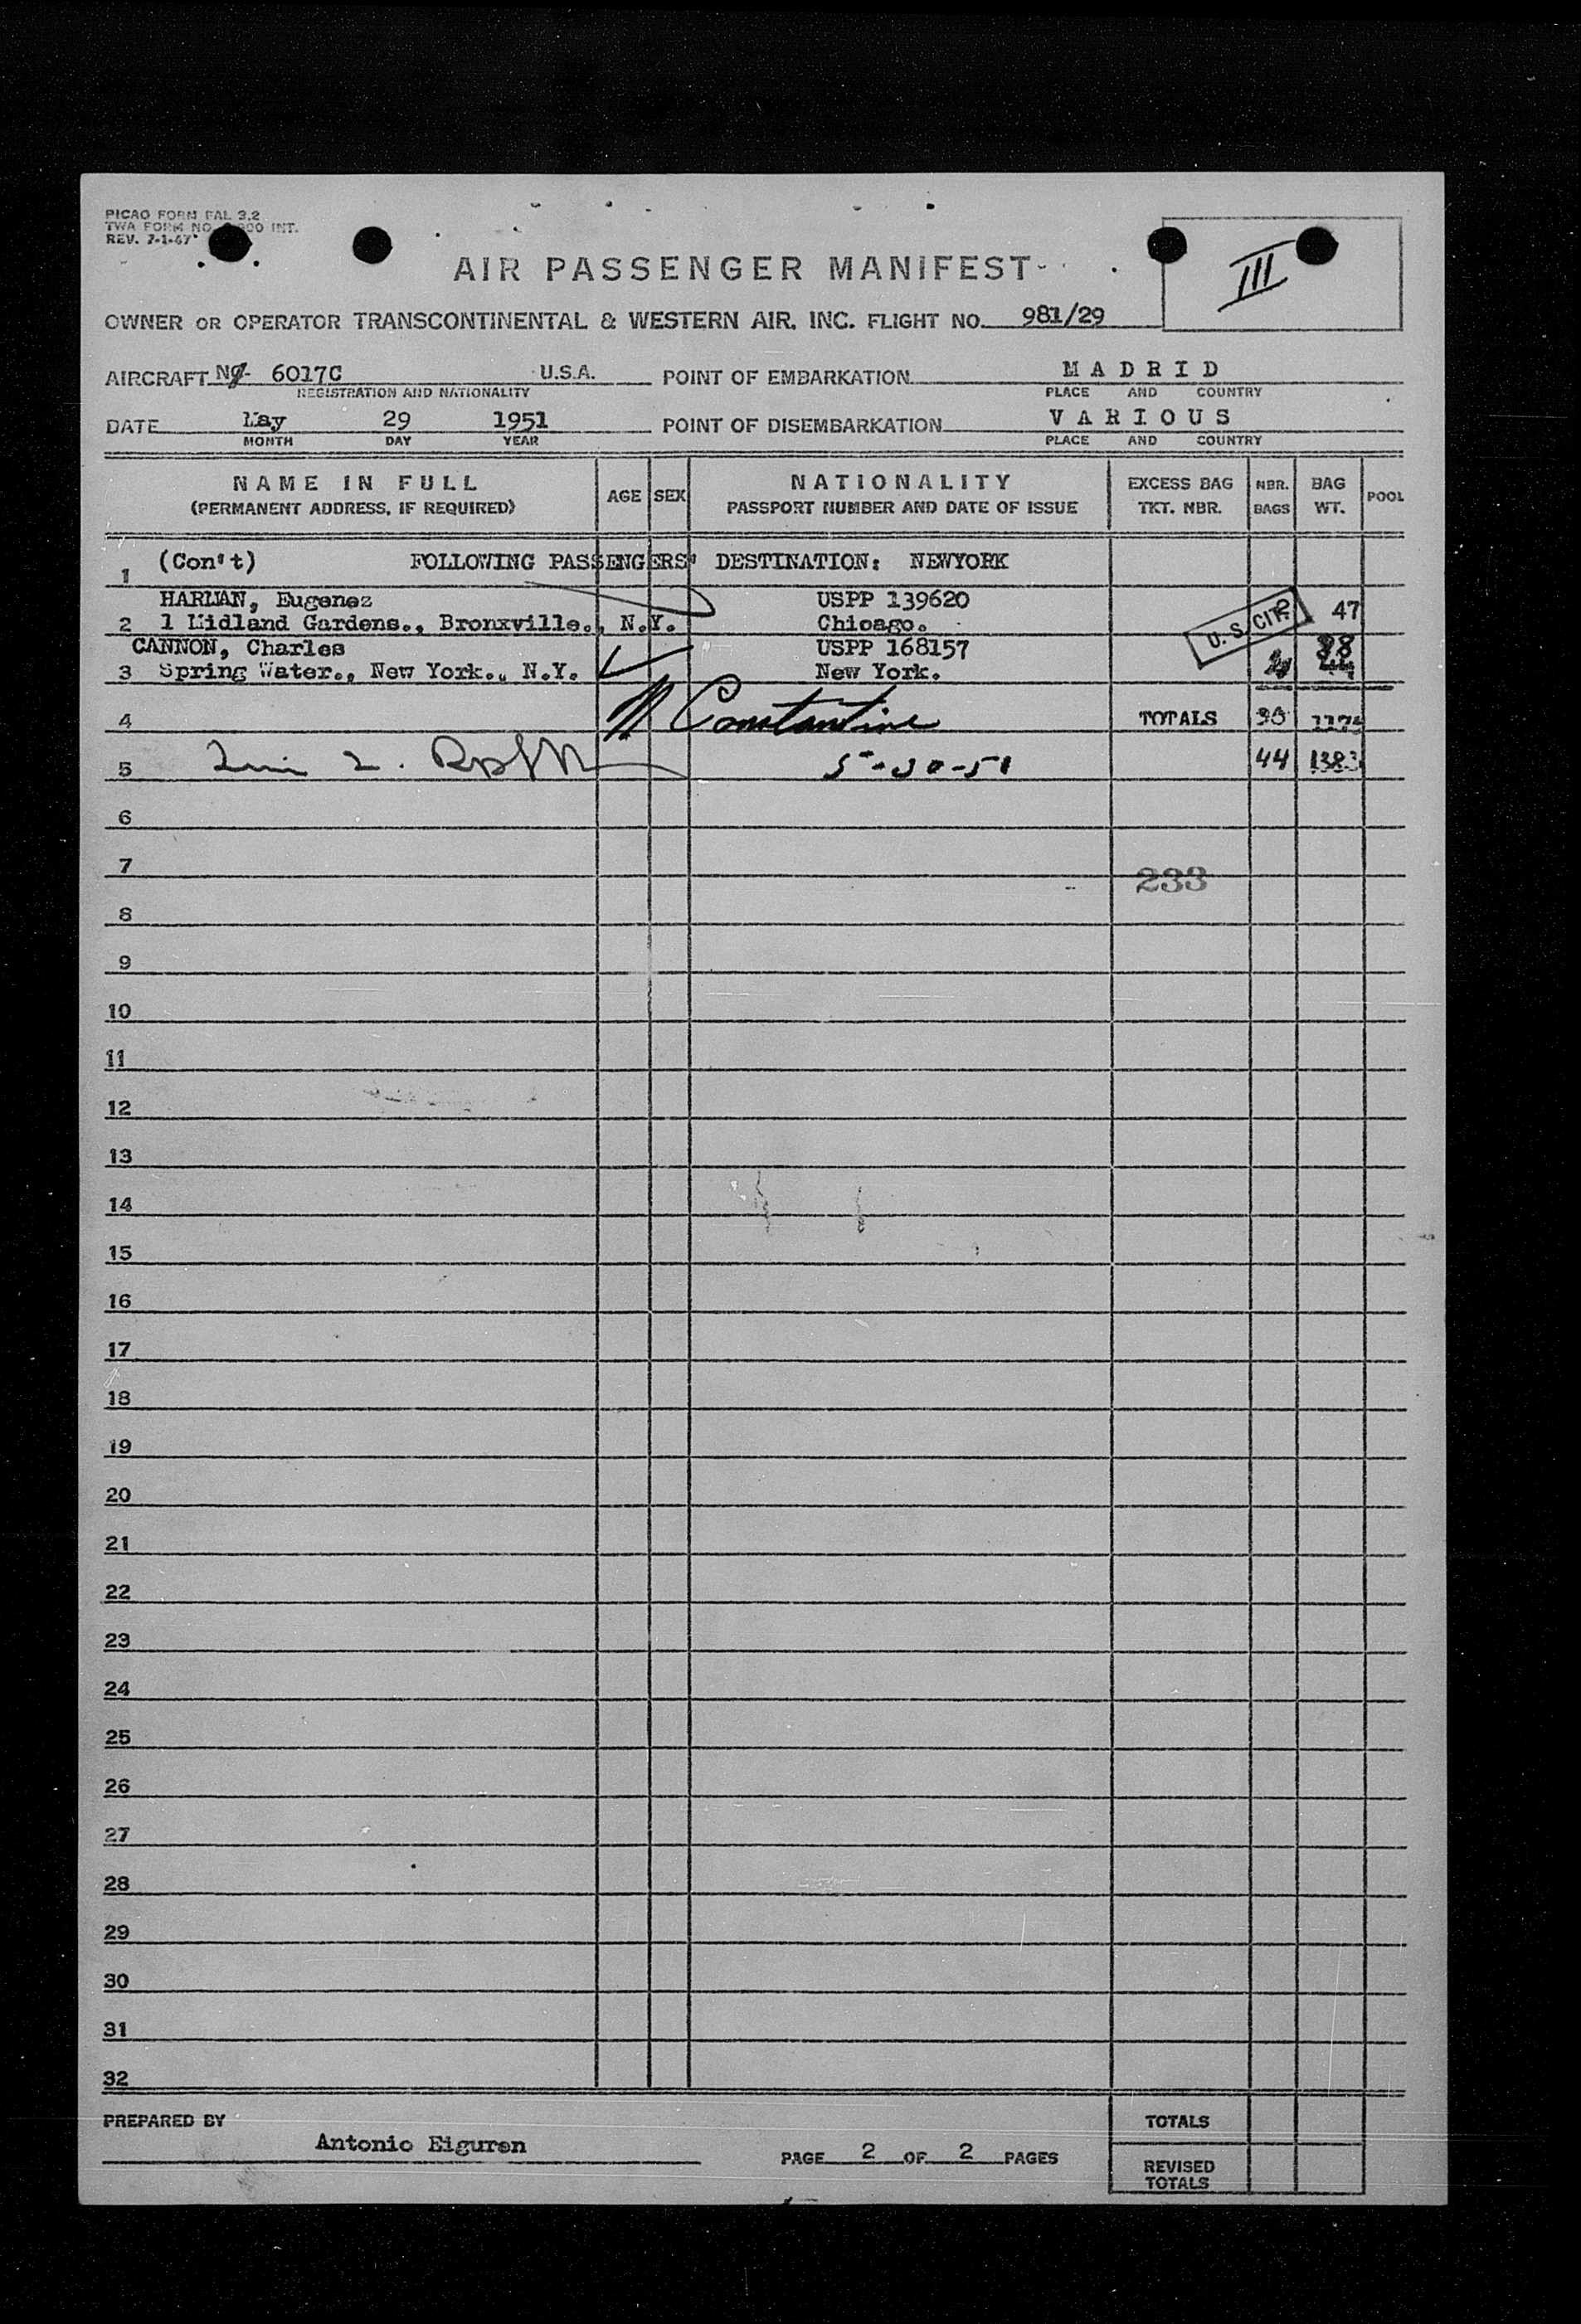 PICAO FORM FAL 3.2
TWA FORM NO. INT.
REV. 7-1-47
AIR PASSENGER MANIFEST
III
OWNER OR OPERATOR TRANSCONTINENTAL & WESTERN AIR, INC. FLIGHT NO. 981/29
AIRCRAFT 6017C U.S.A. POINT OF EMBARKATION MADRID
REGISTRATION AND NATIONALITY PLACE AND COUNTRY
DATE May 29 1951 POINT OF DISEMBARKATION VARIOUS
MONTH DAY YEAR PLACE AND COUNTRY
NAME IN FULL AGE SEX NATIONALITY EXCESS BAG NBR. BAG POOL
(PERMANENT ADDRESS, IF REQUIRED) PASSPORT NUMBER AND DATE OF ISSUE TKT. NBR. BAGS WT.
1 (Con't) FOLLOWING PASSENGERS' DESTINATION: NEWYORK
HARMAN, Eugenez USPP 139620 47
2 1 Midland Gardens., Bronxville., N.Y. Chicago. U. S. CIT.
CANNON, Charles USPP 168157 38
3 Spring Water., New York., N.Y. New York. 44
4 Constantine TOTALS 
5 5-30-51 44 1383
6
7 233
8
9
10
11
12
13
14
15
16
17
18
19
20
21
22
23
24
25
26
27
28
29
30
31
32
PREPARED BY TOTALS
Antonio Eiguren PAGE 2 OF 2 PAGES
REVISED
TOTALS